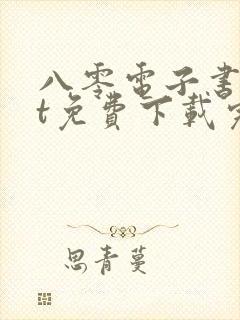 八零電子書
t免費下載完
思青蔓